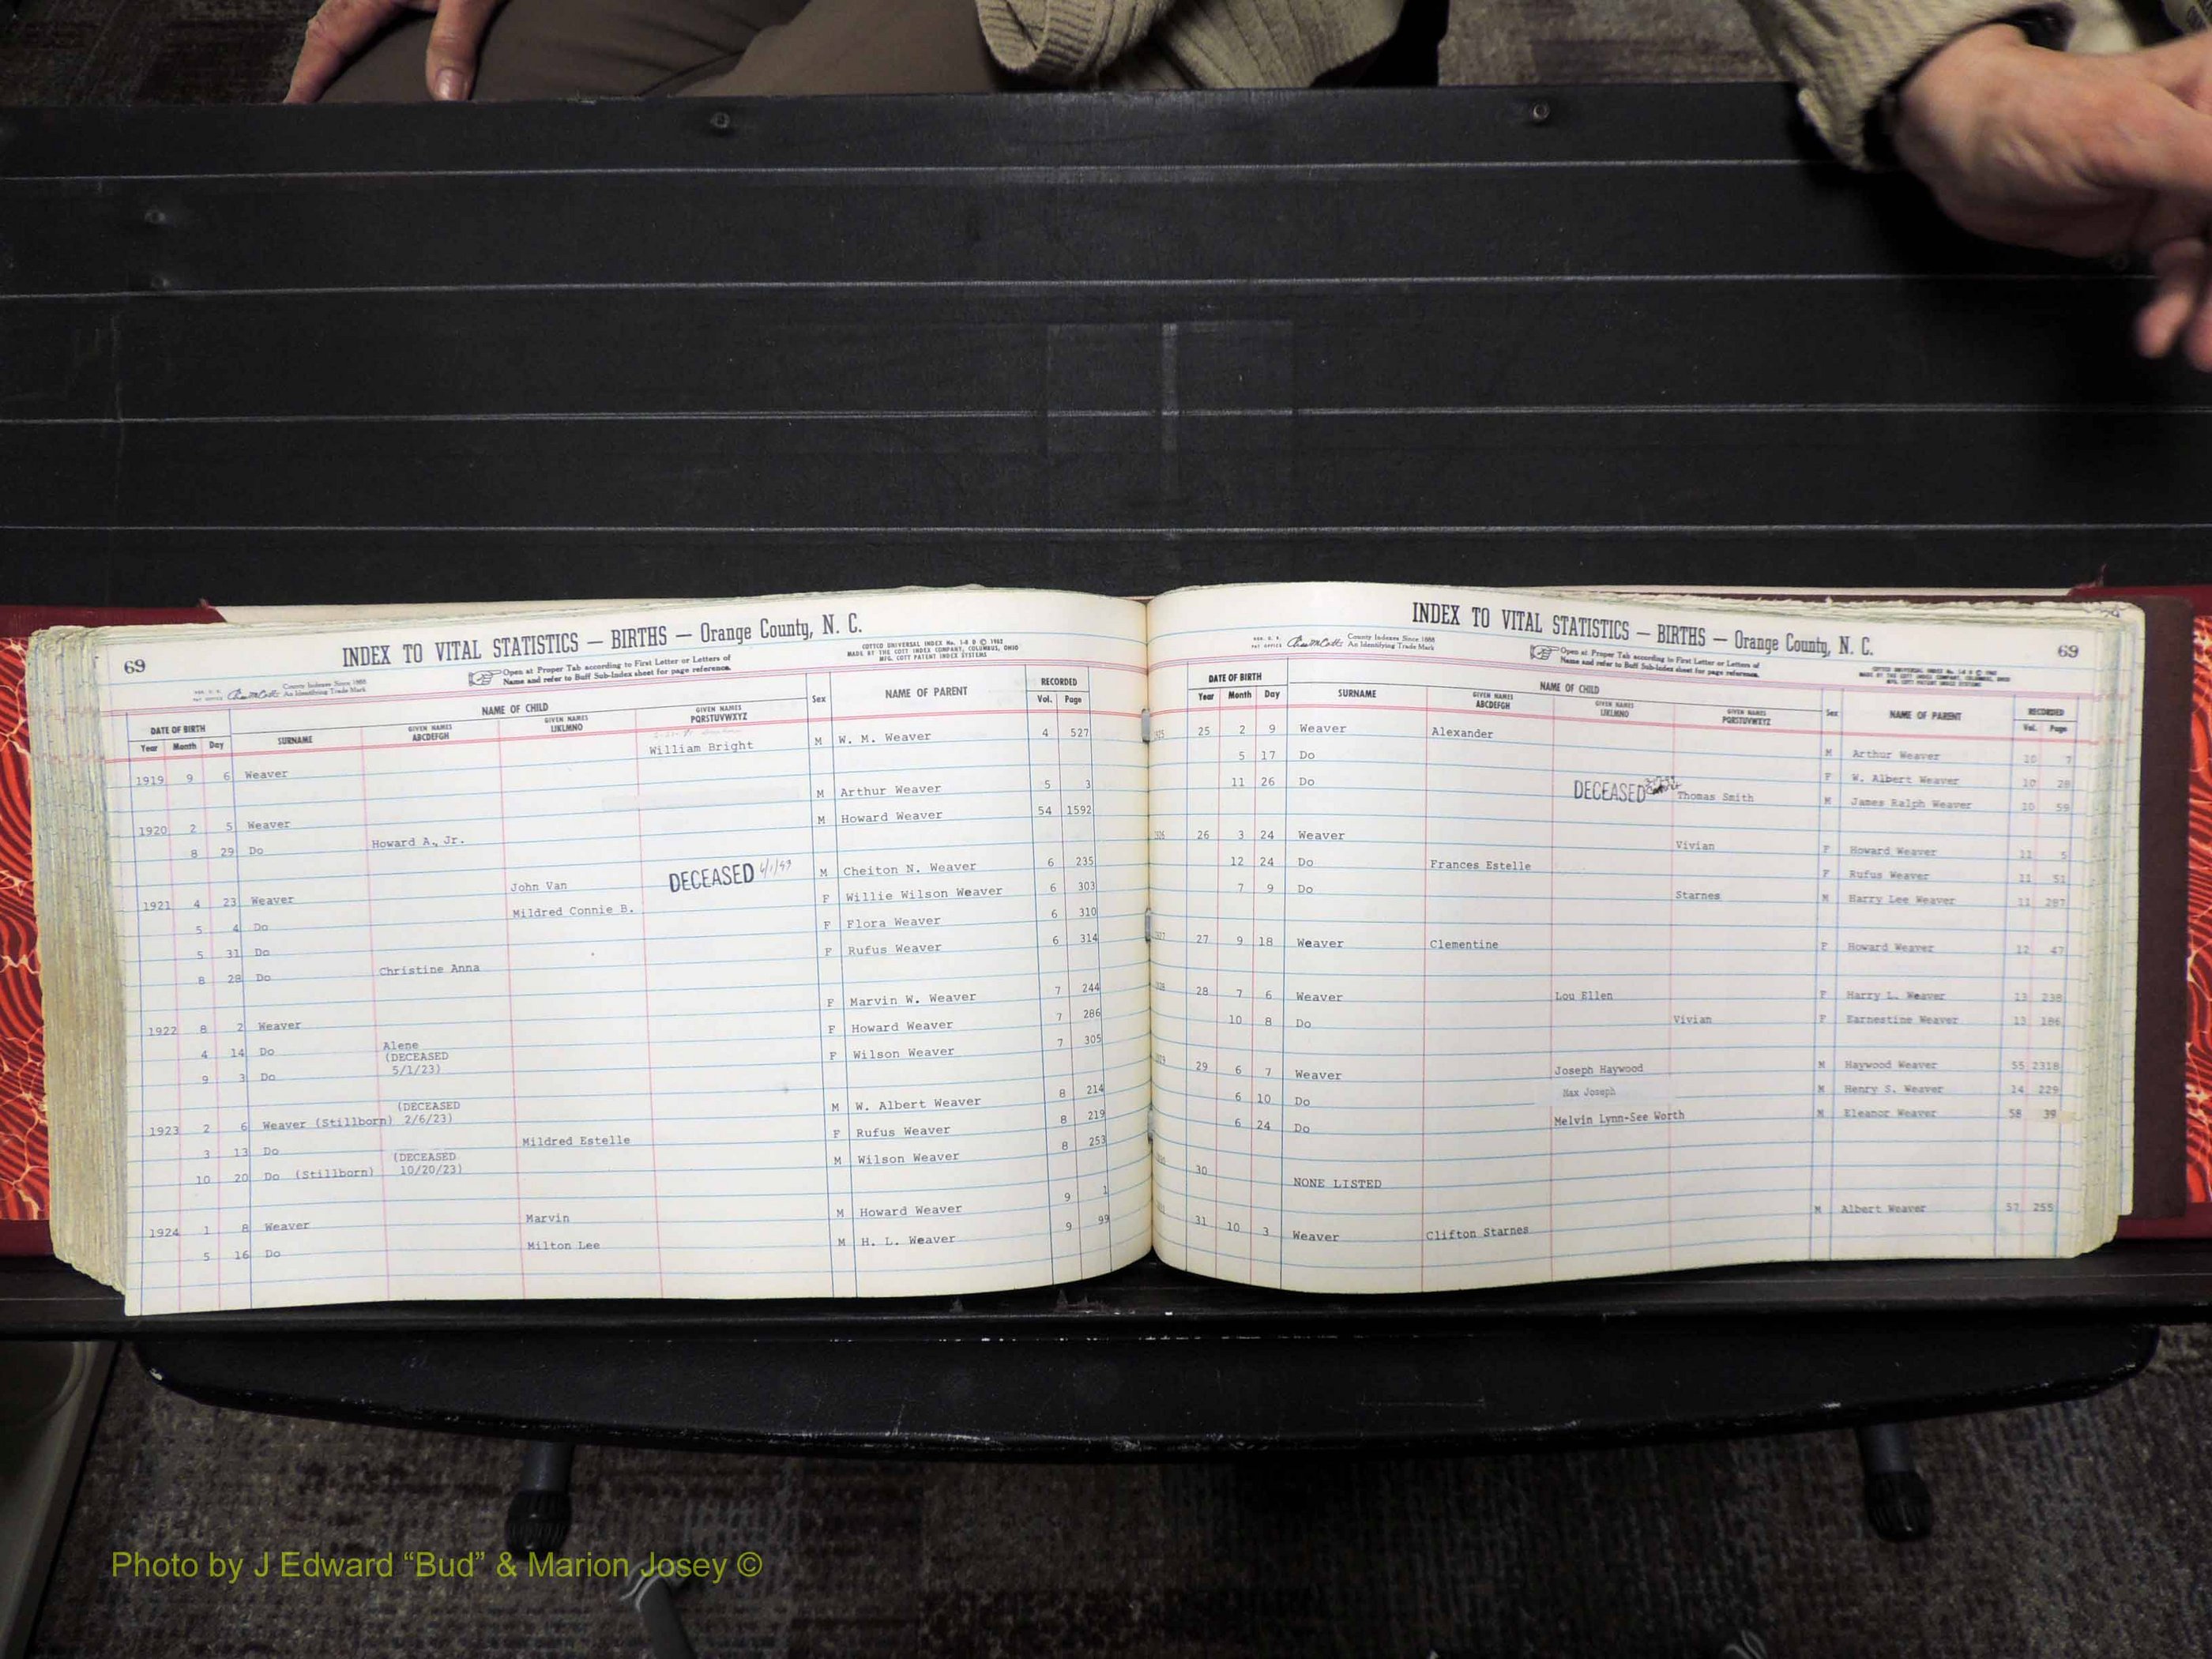 69
INDEX TO VITAL STATISTICS — BIRTHS — Orange County, N. C.
County Indexes Since 1888
An Identifying Trade Mark
Open at Proper Tab according to First Letter or Letters of
Name and refer to Buff Sub-Index sheet for page reference.
COTTCO UNIVERSAL INDEX No. 1-8 D © 1962
MADE BY THE COTT INDEX COMPANY, COLUMBUS, OHIO
MFG. COTT PATENT INDEX SYSTEMS
DATE OF BIRTH NAME OF CHILD Sex NAME OF PARENT RECORDED
Year Month Day SURNAME GIVEN NAMES ABCDEFGH GIVEN NAMES IJKLMNO GIVEN NAMES PQRSTUVWXYZ Vol. Page
1919 9 6 Weaver William Bright M W. M. Weaver 4 527
1920 2 5 Weaver M Arthur Weaver 5 3
8 29 Do Howard A., Jr. M Howard Weaver 54 1592
1921 4 23 Weaver John Van DECEASED M Cheiton N. Weaver 6 235
5 4 Do Mildred Connie B. F Willie Wilson Weaver 6 303
5 31 Do F Flora Weaver 6 310
8 28 Do Christine Anna F Rufus Weaver 6 314
1922 8 2 Weaver F Marvin W. Weaver 7 244
4 14 Do Alene F Howard Weaver 7 286
(DECEASED
9 3 Do 5/1/23) F Wilson Weaver 7 305
(DECEASED
1923 2 6 Weaver (Stillborn) 2/6/23) M W. Albert Weaver 8 214
3 13 Do Mildred Estelle F Rufus Weaver 8 219
(DECEASED
10 20 Do (Stillborn) 10/20/23) M Wilson Weaver 8 253
1924 1 8 Weaver Marvin M Howard Weaver 9 1
5 16 Do Milton Lee M H. L. Weaver 9 99
INDEX TO VITAL STATISTICS — BIRTHS — Orange County, N. C.
69
County Indexes Since 1888
An Identifying Trade Mark
Open at Proper Tab according to First Letter or Letters of
Name and refer to Buff Sub-Index sheet for page reference.
DATE OF BIRTH NAME OF CHILD Sex NAME OF PARENT RECORDED
Year Month Day SURNAME GIVEN NAMES ABCDEFGH GIVEN NAMES IJKLMNO GIVEN NAMES PQRSTUVWXYZ Vol. Page
25 2 9 Weaver Alexander M Arthur Weaver 10 7
5 17 Do F W. Albert Weaver 10 28
11 26 Do DECEASED Thomas Smith M James Ralph Weaver 10 59
26 3 24 Weaver Vivian F Howard Weaver 11 5
12 24 Do Frances Estelle F Rufus Weaver 11 51
7 9 Do Starnes M Harry Lee Weaver 11 287
27 9 18 Weaver Clementine F Howard Weaver 12 47
28 7 6 Weaver Lou Ellen F Harry L. Weaver 13 238
10 8 Do Vivian F Earnestine Weaver 13 186
29 6 7 Weaver Joseph Haywood M Haywood Weaver 55 2318
6 10 Do Max Joseph M Henry S. Weaver 14 229
6 24 Do Melvin Lynn-See Worth M Eleanor Weaver 58 39
30 NONE LISTED
31 10 3 Weaver Clifton Starnes M Albert Weaver 57 255
Photo by J Edward “Bud” & Marion Josey ©